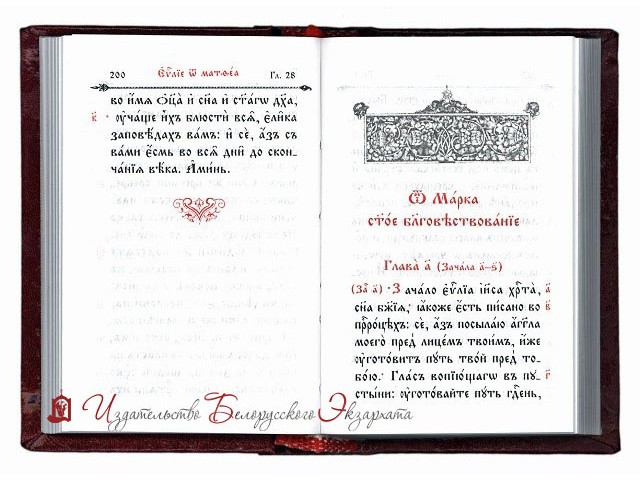 200 Е҆ѵⷢ҇лїе ѿ матѳеа Гл. 28
во и҆́мѧ ѻ҆ц҃а̀ и҆ сн҃а и҆ ст҃а́гѡ дх҃а,
к҃ ᲂу҆ча́ще и҆̀хъ блюстѝ всѧ̑, є҆ли̑ка
заповѣ́дахъ ва́мъ: и҆ сѐ, а҆́зъ съ
ва́ми є҆́смь во всѧ̑ дни̑ до скон-
ча́нїѧ вѣ́ка. А҆ми́нь.
Ѿ Ма́рка
ст҃о́е бл҃говѣствова́нїе
Глава̀ а҃ (Зача̑ла а҃–ѕ҃)
(Заⷱ҇ а҃) З ача́ло є҆ѵⷢ҇лїа і҆и҃са хрⷭ҇та̀, а҃
сн҃а бж҃їѧ: ꙗ҆́коже є҆́сть пи́сано во в҃
прⷪ҇ро́цѣхъ: сѐ, а҆́зъ посыла́ю а҆́гг҃ла
моего̀ пред̾ лице́мъ твои́мъ, и҆́же
ᲂу҆гото́витъ пꙋ́ть тво́й пред̾ то-
бо́ю: Гла́съ вопїю́щагѡ въ пꙋ- г҃
сты́ни: ᲂу҆гото́вайте пꙋ́ть гдⷭ҇ень,
Издательство Белорусского Экзархата